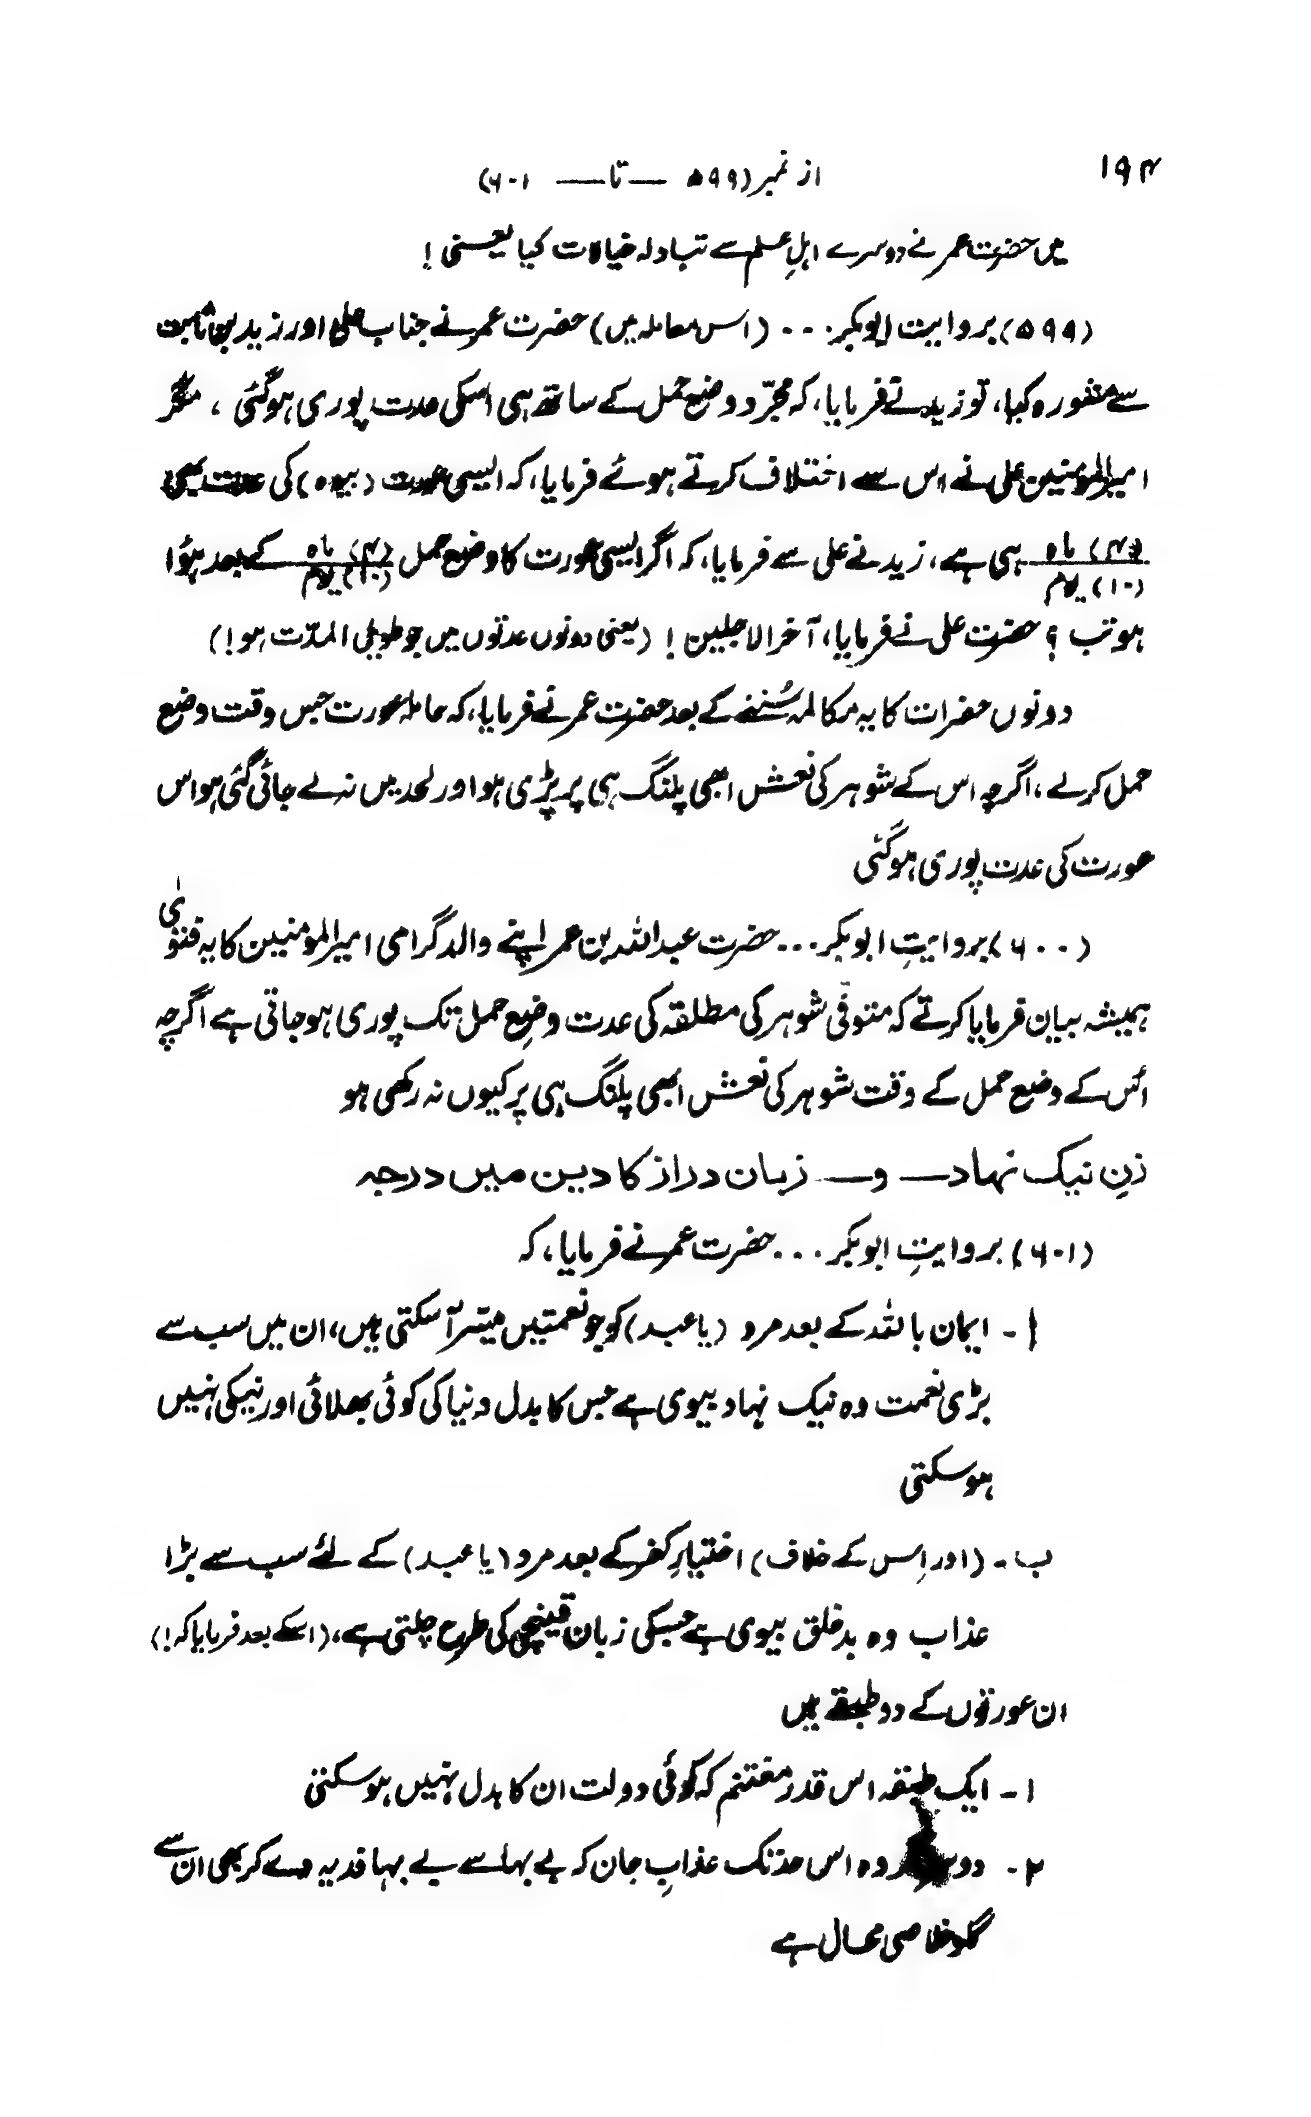 ۱۹۴
از نمبر (۵۹۹ — تا — ۶۰۱)
میں حضرت عمر نے دوسرے اہلِ علم سے تبادلہ خیالات کیا یعنی!
(۵۹۹) بروایت ابوبکر ... (اس معاملہ میں) حضرت عمر نے جناب علی اور زید بن ثابت
سے مشورہ کیا، تو زید نے فرمایا، کہ مجرّد وضع حمل کے ساتھ ہی اسکی عدت پوری ہوگئی ، مگر
امیرالمؤمنین علی نے اس سے اختلاف کرتے ہوئے فرمایا، کہ ایسی عورت (بیوہ) کی عدت بھی
(۴) ماہ (۱۰) یوم ہی ہے، زید نے علی سے فرمایا، کہ اگر ایسی عورت کا وضع حمل (۴) ماہ (۱۰) یوم کے بعد ہؤا
ہو تب ؟ حضرت علی نے فرمایا، آخر الاجلین ! (یعنی دونوں عدتوں میں جو طویلی المدّت ہو!)
دونوں حضرات کا یہ مکالمہ سُننے کے بعد حضرت عمر نے فرمایا، کہ حاملہ عورت جس وقت وضع
حمل کرلے، اگرچہ اس کے شوہر کی نعش ابھی پلنگ ہی پر پڑی ہو اور لحد میں نہ لے جائی گئی ہو اس
عورت کی عدت پوری ہوگئی
(۶۰۰) بروایتِ ابوبکر ... حضرت عبداللہ بن عمر اپنے والد گرامی امیرالمومنین کا یہ فتوٰی
ہمیشہ بیان فرمایا کرتے کہ متوفّی شوہر کی مطلقہ کی عدت وضعِ حمل تک پوری ہوجاتی ہے اگرچہ
اُس کے وضع حمل کے وقت شوہر کی نعش ابھی پلنگ ہی پر کیوں نہ رکھی ہو
زنِ نیک نہاد — و — زبان دراز کا دین میں درجہ
(۶۰۱) بروایتِ ابوبکر ... حضرت عمر نے فرمایا، کہ
ا - ایمان باللہ کے بعد مرد (یا عبد) کو جو نعمتیں میسّر آسکتی ہیں، ان میں سب سے
بڑی نعمت وہ نیک نہاد بیوی ہے جس کا بدل دنیا کی کوئی بھلائی اور نیکی نہیں
ہوسکتی
ب - (اور اِس کے خلاف) اختیارِ کفر کے بعد مرد (یا عبد) کے لئے سب سے بڑا
عذاب وہ بدخلق بیوی ہے جسکی زبان قینچی کی طرح چلتی ہے، (اسکے بعد فرمایا کہ!)
ان عورتوں کے دو طبقے ہیں
۱ - ایک طبقہ اس قدر مغتنم کہ کوئی دولت ان کا بدل نہیں ہوسکتی
۲ - وہ اس حد تک عذابِ جان کہ بے بہا سے بے بہا فدیہ دے کر بھی ان سے
گلو خلاصی محال ہے